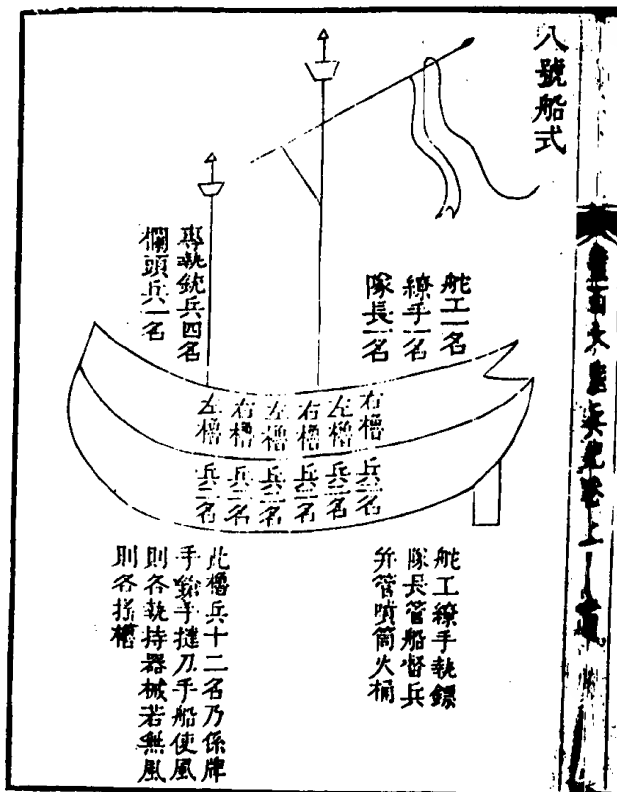 八號船式
舵工一名
繚手一名
隊長一名
專執銃兵四名
欄頭兵一名
右櫓兵二名
左櫓兵二名
右櫓兵二名
左櫓兵二名
右櫓兵二名
左櫓兵二名
舵工繚手執鏢
隊長管船督兵
并管噴筒火桶
此櫓兵十二名乃係牌
手鎗手撻刀手船使風
則各執持器械若無風
則各搖櫓